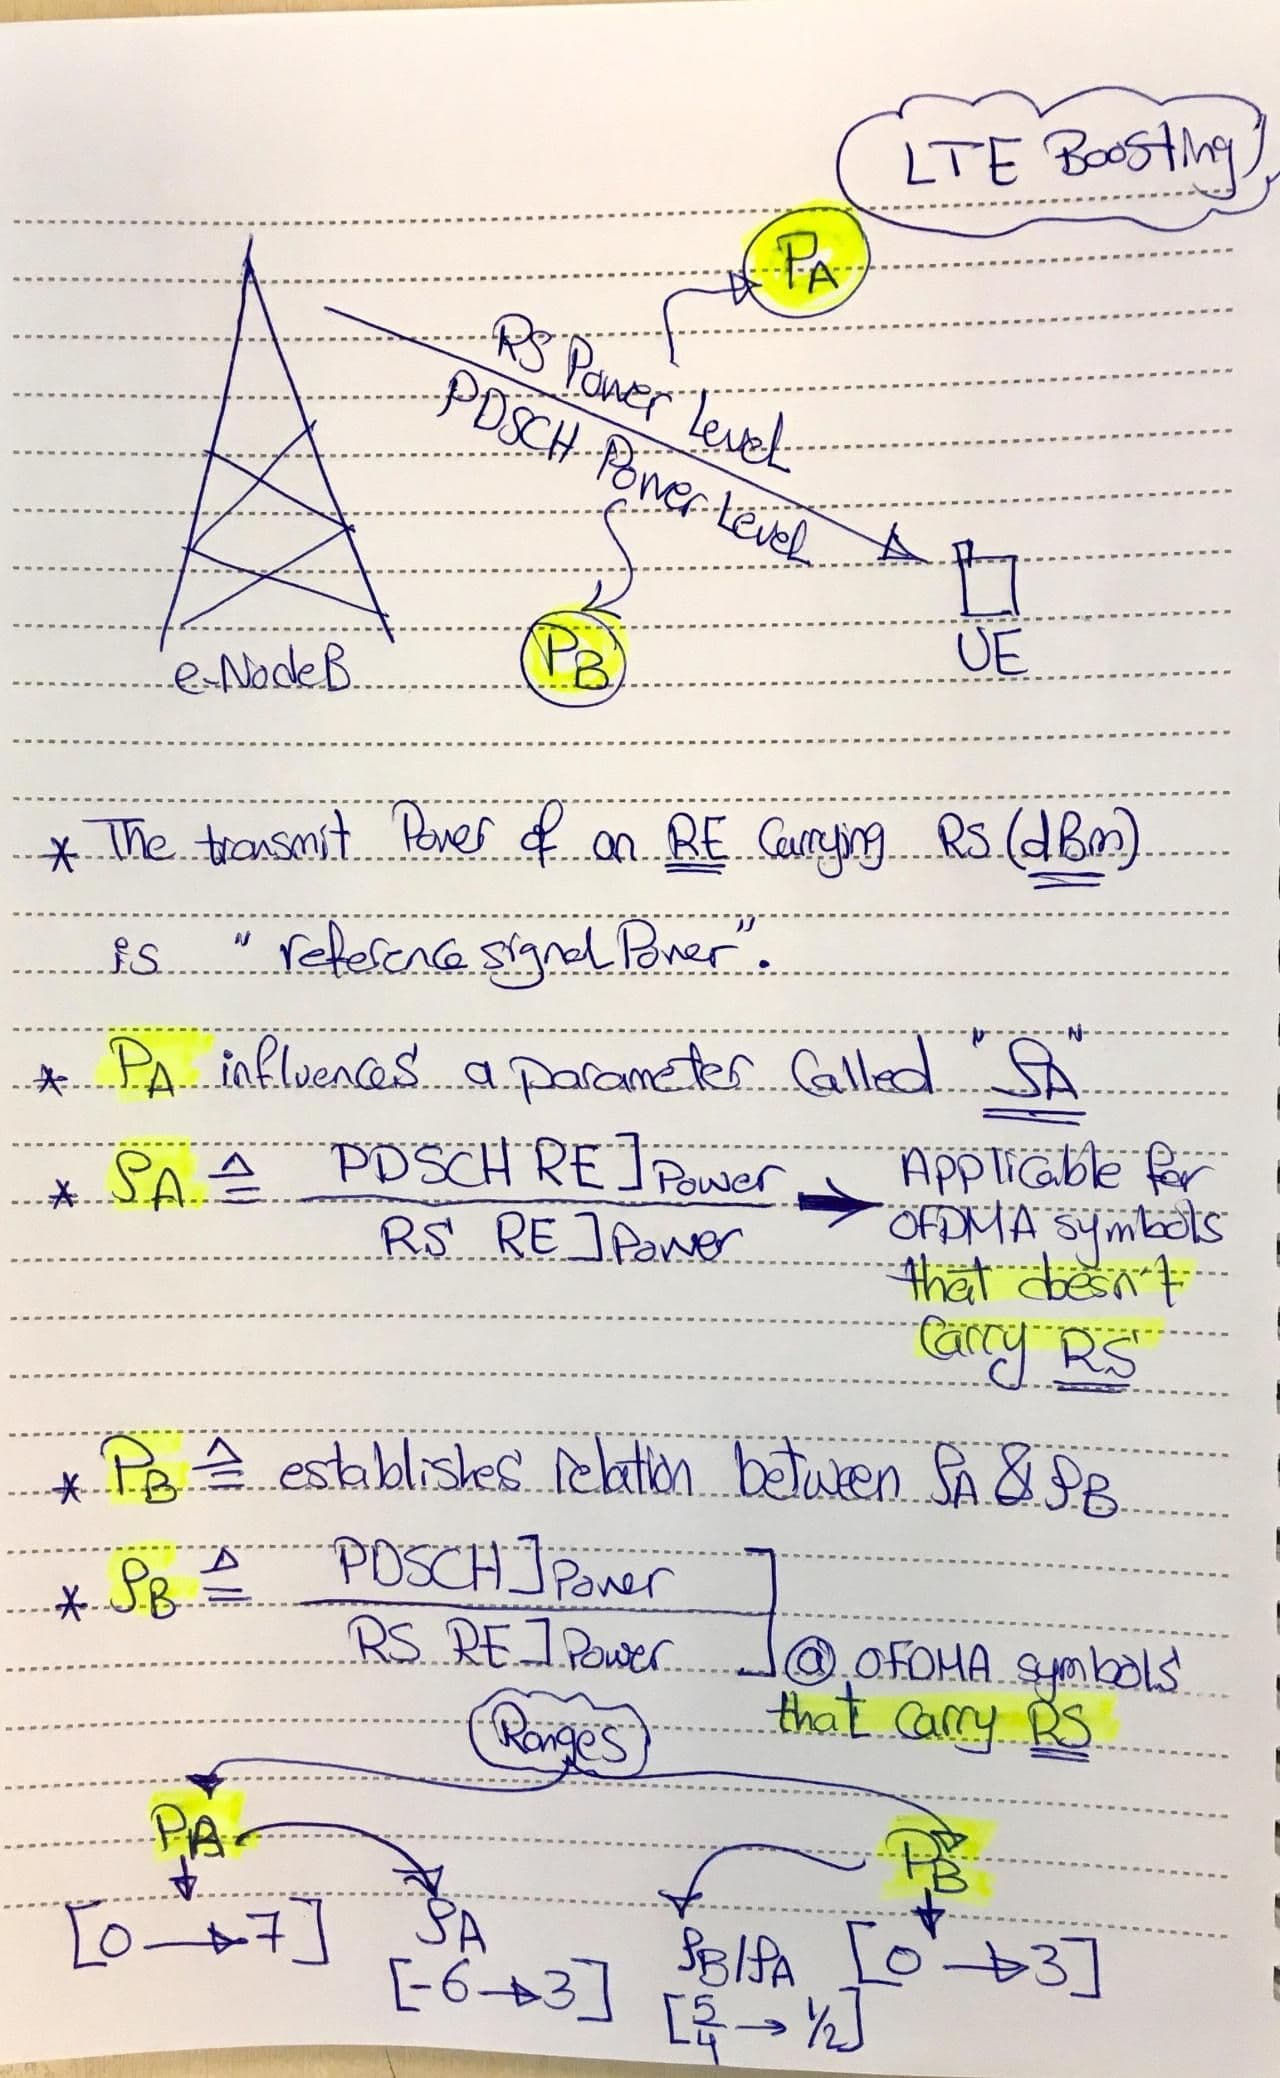 LTE Boosting
PA
RS Power Level
PDSCH Power Level
PB
e-NodeB
UE
* The transmit Power of an RE Carrying RS (dBm)
is "reference signal Power".
* PA influences a parameter Called "ρA"
* ρA ≜ PDSCH RE]Power / RS RE]Power → Applicable for
OFDMA symbols
that doesn't
Carry RS
* PB ≜ establishes relation between ρA & ρB
* ρB ≜ PDSCH]Power / RS RE]Power
@ OFDMA symbols
that carry RS
Ranges
PA
PB
[0→7]
ρA
[-6→3]
ρB/ρA
[5/4 → 1/2]
[0→3]